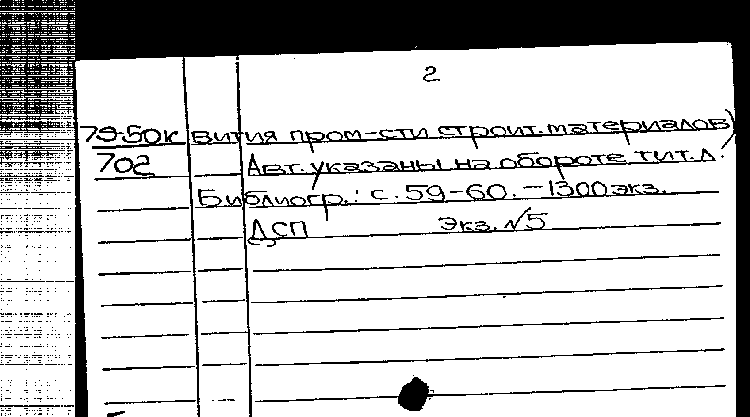 2
79-50к вития пром-сти строит. материалов)
702 Авт. указаны на обороте тит. л.
Библиогр.: с. 59-60. – 1300 экз.
ДСП Экз. №5